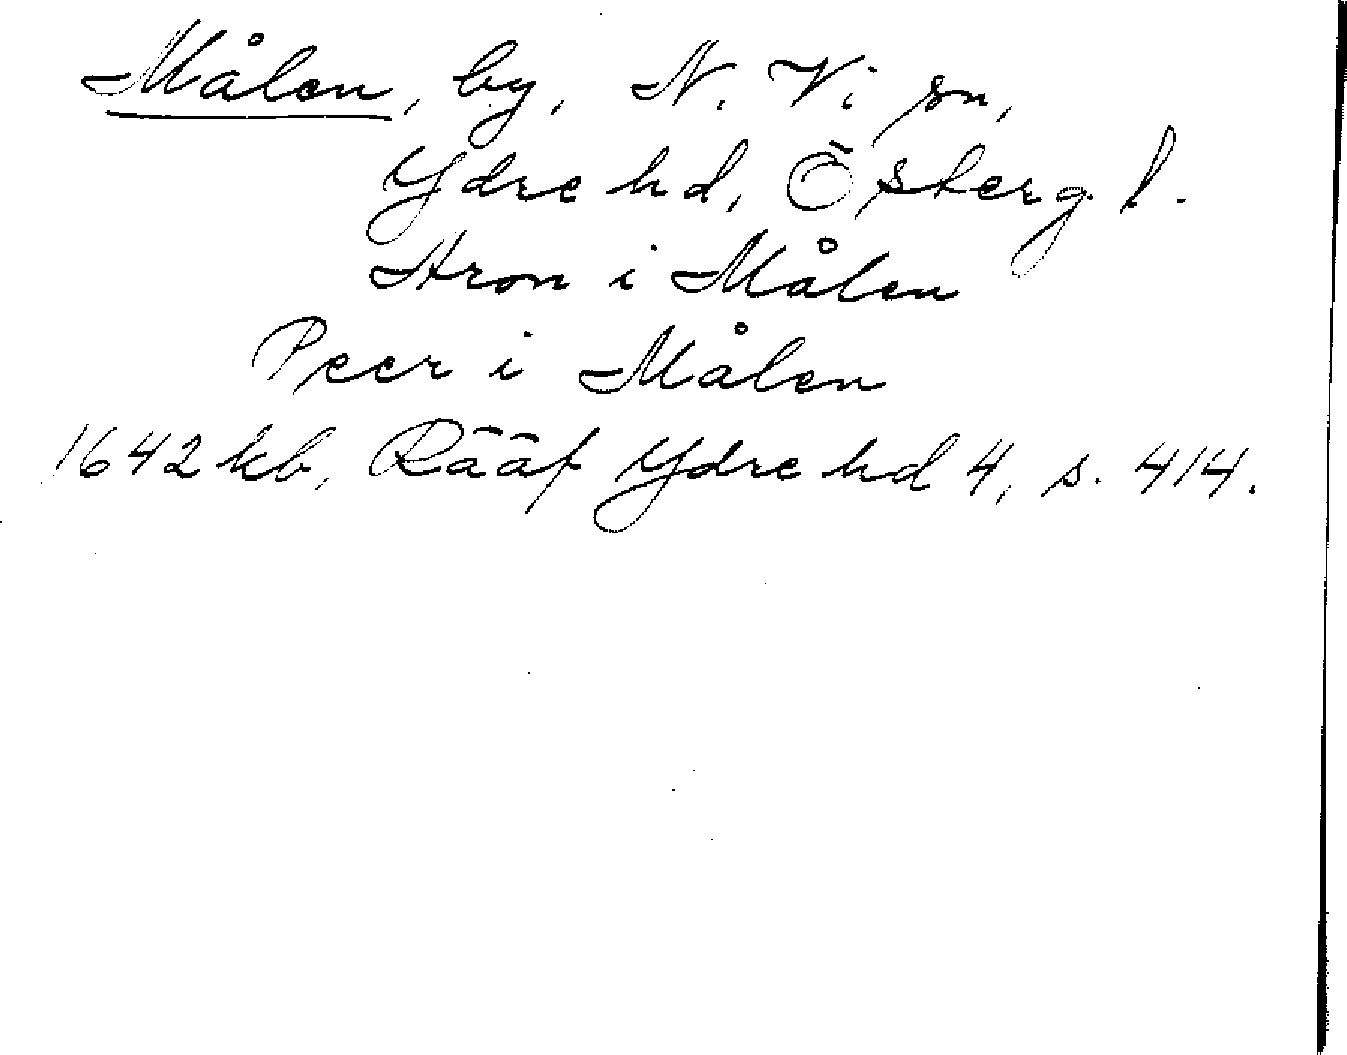 Målen, by, N. Vi sn,
Ydre hd, Östergl.
Aron i Målen
Peer i Målen
1642 kb, Rääf Ydre hd 4, s. 414.